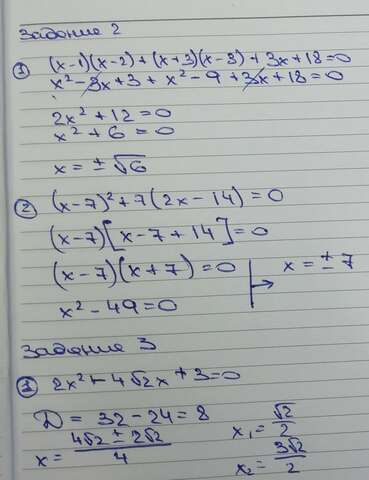 Задание 2
① (x-1)(x-2) + (x+3)(x-3) + 3x+18=0
x² - 3x + 3 + x² - 9 + 3x + 18 = 0
2x² + 12 = 0
x² + 6 = 0
x = ±√6
② (x-7)² + 7(2x-14) = 0
(x-7)[x-7+14] = 0
(x-7)(x+7) = 0 | → x = ±7
x² - 49 = 0
Задание 3
① 2x² - 4√2x + 3 = 0
D = 32 - 24 = 8 x₁ = √2/2
x = (4√2 ± 2√2)/4 x₂ = 3√2/2